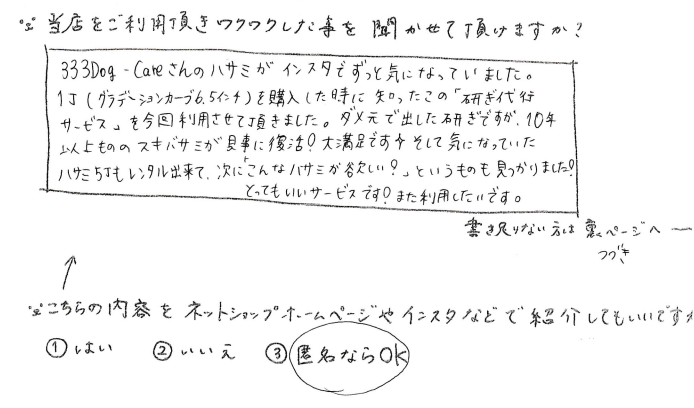 当店をご利用頂きワクワクした事を聞かせて頂けますか?
333Dog-Careさんのハサミがインスタでずっと気になっていました。
1丁(グラデーションカーブ6.5インチ)を購入した時に知ったこの「研ぎ代行
サービス」を今回利用させて頂きました。ダメ元で出した研ぎですが、10年
以上もののスキバサミが見事に復活!大満足です そして気になっていた
ハサミ5丁もレンタル出来て、次に「こんなハサミが欲しい?」というものも見つかりました!
とってもいいサービスです!また利用したいです。
書き足りない方は裏ページへ
つづき
こちらの内容をネットショップホームページやインスタなどで紹介してもいいですか
①はい ②いいえ ③匿名ならOK